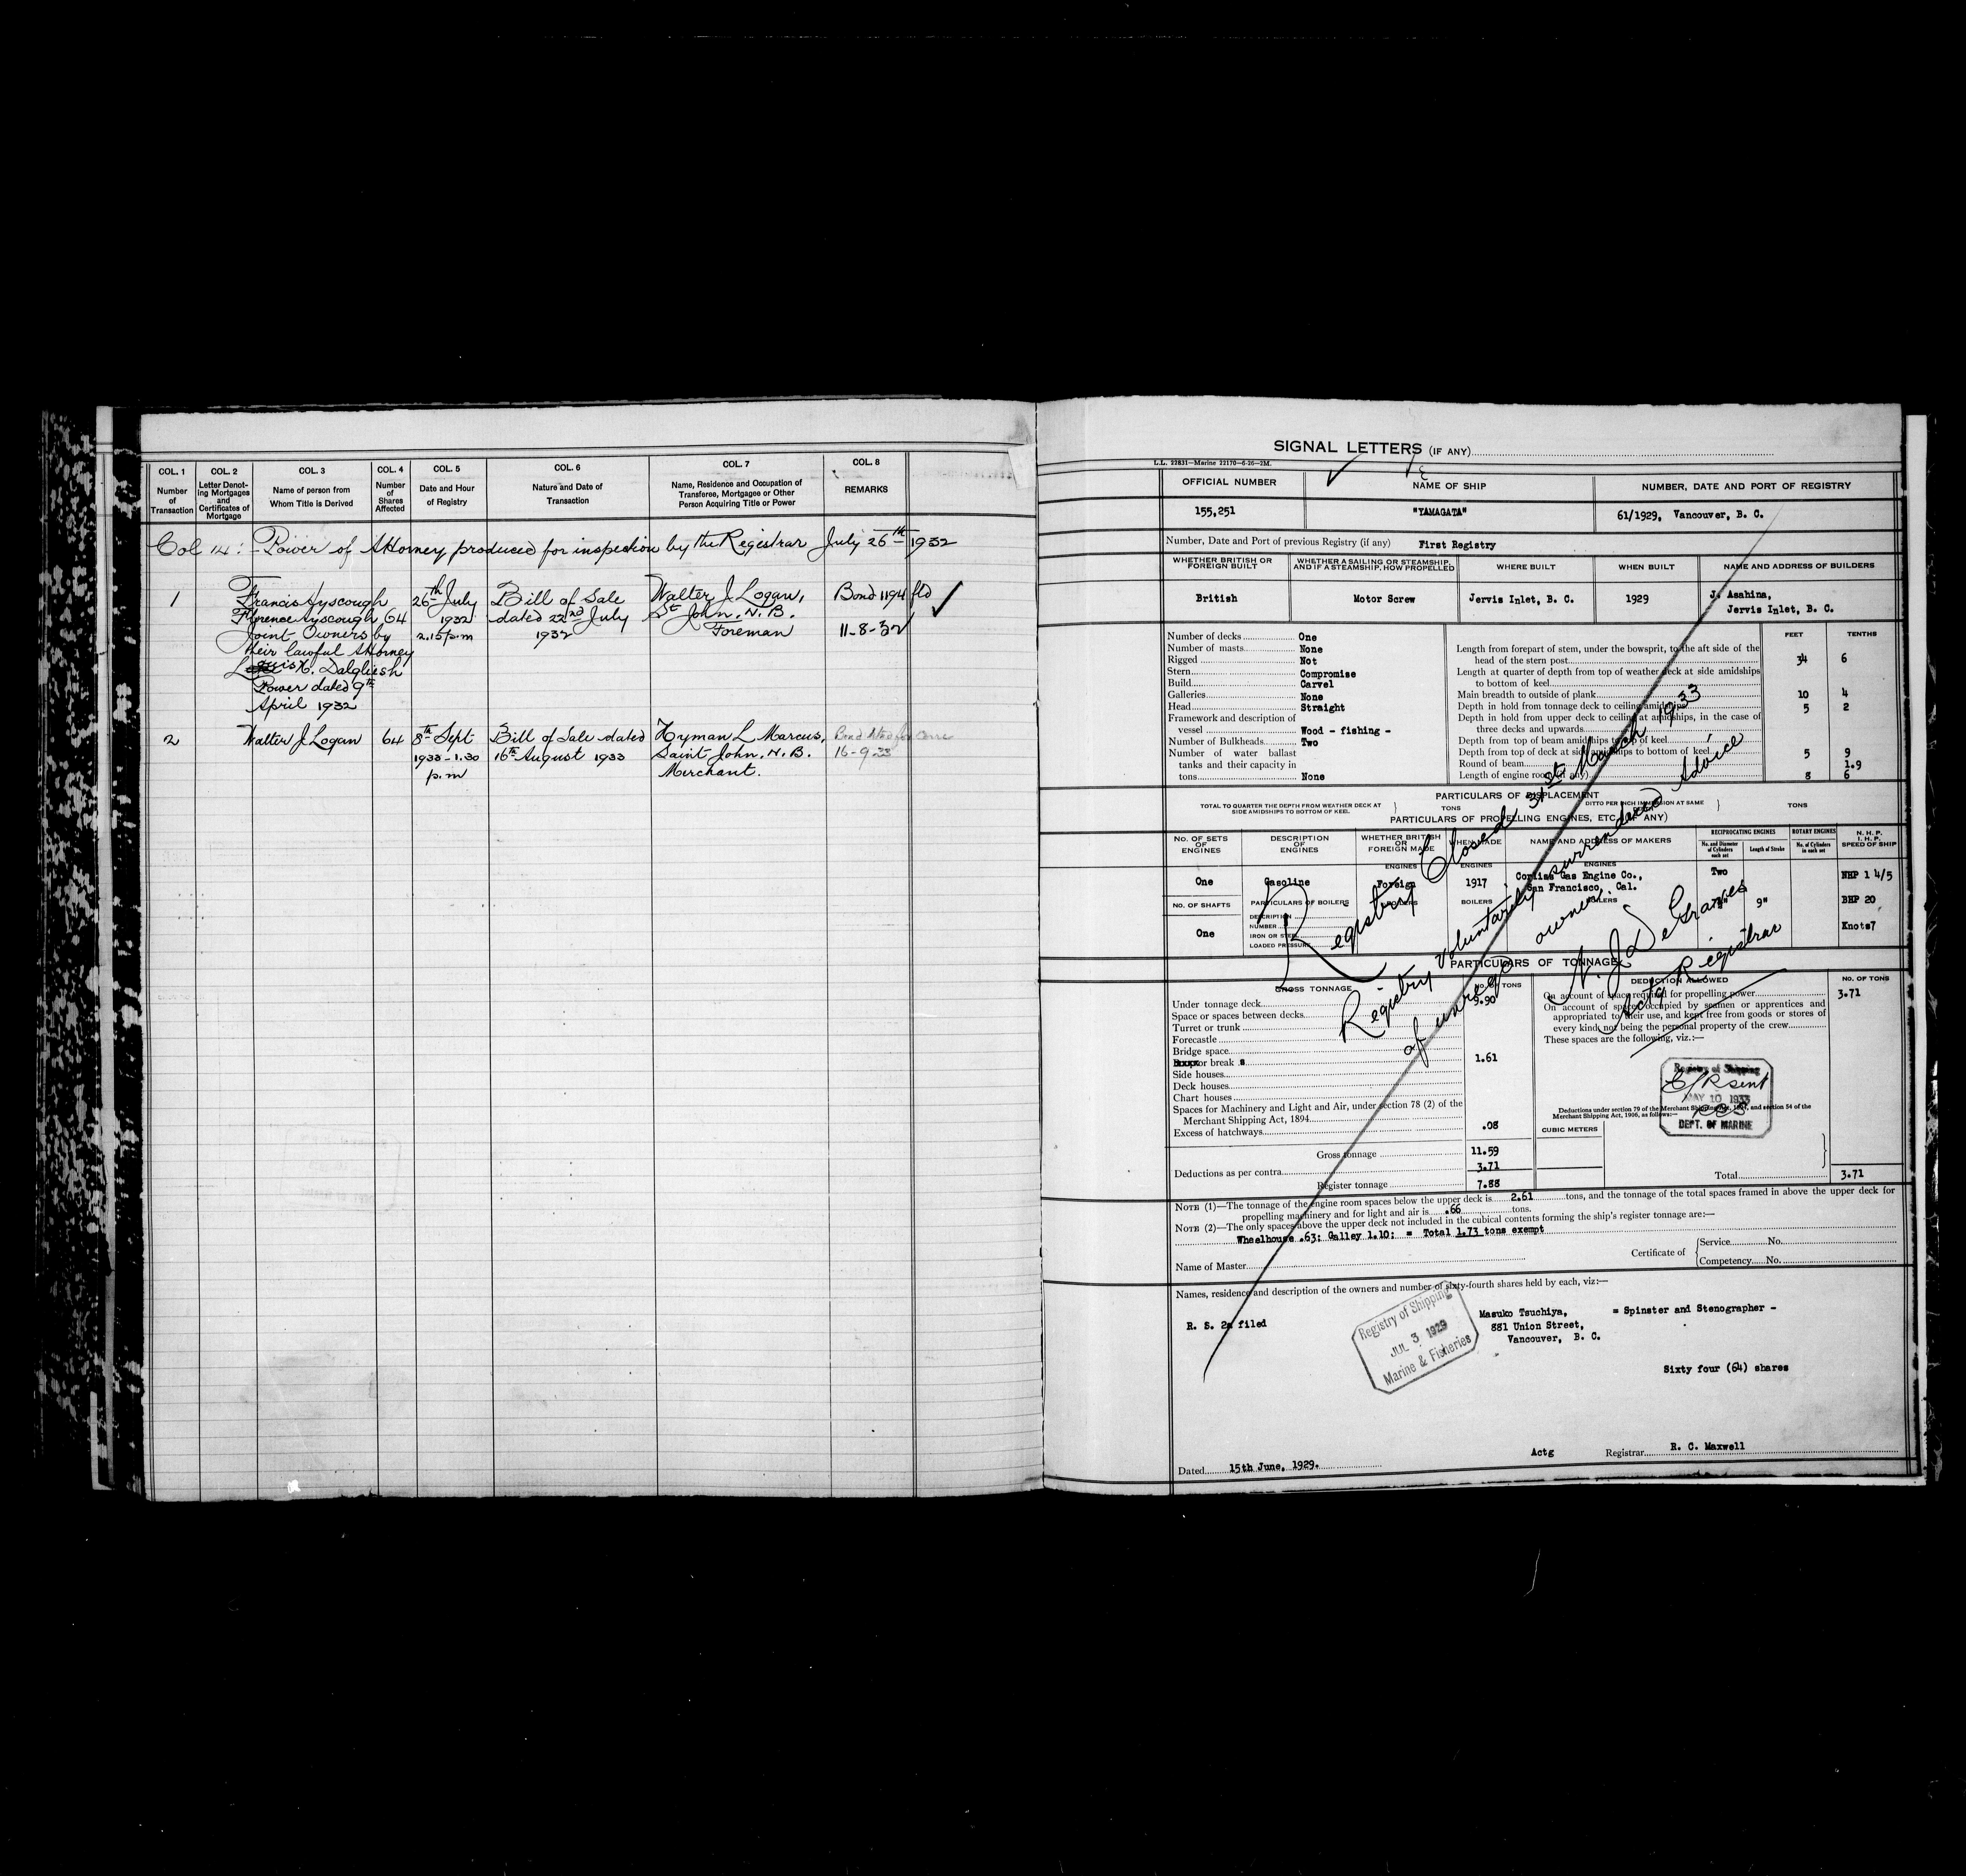 COL. 1 COL. 2 COL. 3 COL. 4 COL. 5 COL. 6 COL. 7 COL. 8
Number of Transaction
Letter Denoting Mortgages and Certificates of Mortgage
Name of person from Whom Title is Derived
Number of Shares Affected
Date and Hour of Registry
Nature and Date of Transaction
Name, Residence and Occupation of Transferee, Mortgagee or Other Person Acquiring Title or Power
REMARKS
Col 14:- Power of Attorney produced for inspection by the Registrar July 26th 1932
1 Francis Ayscough 26th July Bill of Sale Walter J. Logan, Bond 1194 fld
Florence Ayscough 64 1932 dated 22nd July St John, N.B.
Joint Owners by 2.15 p.m 1932 Foreman 11-8-32
their lawful Attorney
H. Dalgliesh
Power dated 9th
April 1932
2 Walter J. Logan 64 8th Sept Bill of Sale dated Hyman L Marcus,
1933 - 1.30 16th August 1933 Saint John, N.B. 16-9-33
p.m Merchant.
SIGNAL LETTERS (IF ANY)
L.L. 22831—Marine 22170—6-26—2M.
OFFICIAL NUMBER NAME OF SHIP NUMBER, DATE AND PORT OF REGISTRY
155,251 "YAMAGATA" 61/1929, Vancouver, B. C.
Number, Date and Port of previous Registry (if any) First Registry
WHETHER BRITISH OR FOREIGN BUILT
WHETHER A SAILING OR STEAMSHIP, AND IF A STEAMSHIP, HOW PROPELLED
WHERE BUILT WHEN BUILT NAME AND ADDRESS OF BUILDERS
British Motor Screw Jervis Inlet, B. C. 1929 J. Asahina,
Jervis Inlet, B. C.
FEET TENTHS
Number of decks One
Number of masts None
Rigged Not
Stern Compromise
Build Carvel
Galleries None
Head Straight
Framework and description of
vessel Wood - fishing -
Number of Bulkheads Two
Number of water ballast
tanks and their capacity in
tons None
Length from forepart of stem, under the bowsprit, to the aft side of the
head of the stern post 34 6
Length at quarter of depth from top of weather deck at side amidships
to bottom of keel
Main breadth to outside of plank 10 4
Depth in hold from tonnage deck to ceiling amidships 5 2
Depth in hold from upper deck to ceiling at amidships, in the case of
three decks and upwards
Depth from top of beam amidships to top of keel
Depth from top of deck at side amidships to bottom of keel 5 9
Round of beam 1.9
Length of engine room (if any) 8 6
PARTICULARS OF DISPLACEMENT
TOTAL TO QUARTER THE DEPTH FROM WEATHER DECK AT SIDE AMIDSHIPS TO BOTTOM OF KEEL. } TONS
DITTO PER INCH IMMERSION AT SAME DEPTH } TONS
PARTICULARS OF PROPELLING ENGINES, ETC. (IF ANY)
No. OF SETS OF ENGINES
DESCRIPTION OF ENGINES
WHETHER BRITISH OR FOREIGN MADE
WHEN MADE
NAME AND ADDRESS OF MAKERS
RECIPROCATING ENGINES ROTARY ENGINES
No. and Diameter of Cylinders each set
Length of Stroke
No. of Cylinders in each set
N. H. P. I. H. P. SPEED OF SHIP
ENGINES ENGINES ENGINES
One Gasoline Foreign 1917 Corliss Gas Engine Co., Two NHP 1 4/5
San Francisco, Cal.
9" BHP 20
No. OF SHAFTS PARTICULARS OF BOILERS BOILERS BOILERS BOILERS
DESCRIPTION
NUMBER
IRON OR STEEL
LOADED PRESSURE
One Knots7
PARTICULARS OF TONNAGE
GROSS TONNAGE No. OF TONS
Under tonnage deck 9.90
Space or spaces between decks
Turret or trunk
Forecastle
Bridge space
or break s 1.61
Side houses
Deck houses
Chart houses
Spaces for Machinery and Light and Air, under section 78 (2) of the
Merchant Shipping Act, 1894
Excess of hatchways .08
Gross tonnage 11.59
Deductions as per contra 3.71
Register tonnage 7.88
DEDUCTION ALLOWED No. OF TONS
On account of space required for propelling power 3.71
On account of spaces occupied by seamen or apprentices and
appropriated to their use, and kept free from goods or stores of
every kind not being the personal property of the crew
These spaces are the following, viz.:—
Deductions under section 79 of the Merchant Shipping Act, 1894, and section 54 of the
Merchant Shipping Act, 1906, as follows:—
CUBIC METERS
Total 3.71
Registry of Shipping
C/R sent
MAY 10 1933
DEPT. OF MARINE
Registry Closed 31st March 1933
Registry voluntarily surrendered Advice
of unreg'd owner.
N. J. DeGraves
Actg Registrar
NOTE (1)—The tonnage of the engine room spaces below the upper deck is 2.61 tons, and the tonnage of the total spaces framed in above the upper deck for
propelling machinery and for light and air is .66 tons.
NOTE (2)—The only spaces above the upper deck not included in the cubical contents forming the ship's register tonnage are:—
Wheelhouse .63: Galley 1.10: = Total 1.73 tons exempt
Name of Master
Certificate of { Service No.
Competency No.
Names, residence and description of the owners and number of sixty-fourth shares held by each, viz:—
R. S. 2a filed
Registry of Shipping
JUL 3 1929
Marine & Fisheries
Masuko Tsuchiya, = Spinster and Stenographer -
881 Union Street,
Vancouver, B. C.
Sixty four (64) shares
Dated 15th June, 1929.
Actg Registrar R. C. Maxwell